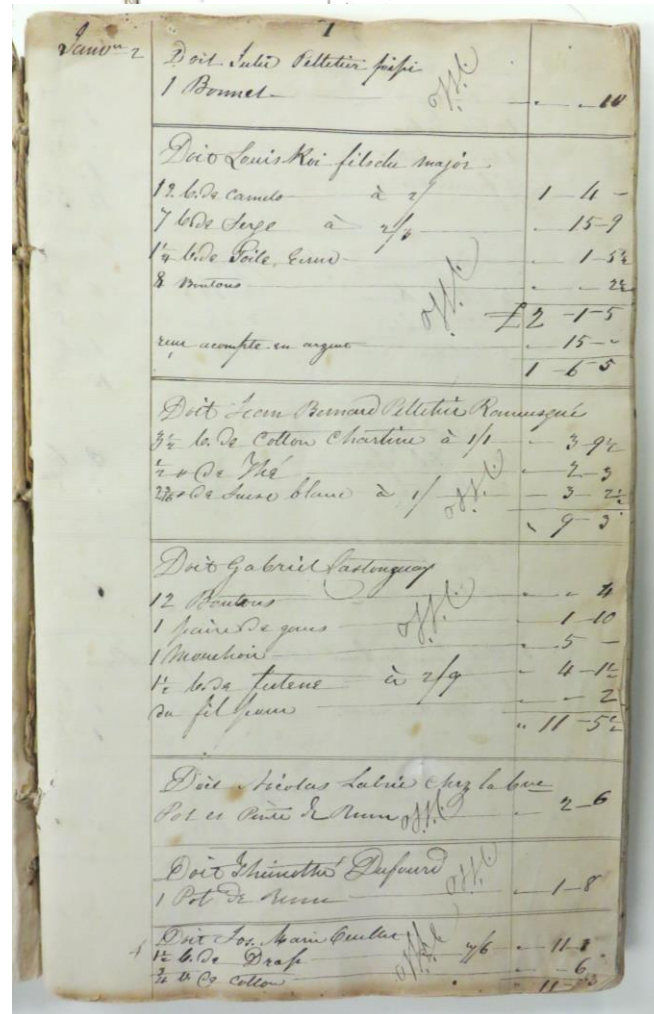 1
Janvr 2
Doit Julie Pelletier
1 Bonnet - " - " - 10
Doit Louis Roi fils du major
12 v. de camelo à 2/ 1 - 4 -
7 v. de Serge à 2/3 - 15 - 9
1 1/4 v. de Toile - 1 - 5 1/2
8 Boutons - " - 2 1/2
£2 - 1 - 5
acompte en argent " 15 - "
1 - 6 - 5
Doit Jean Bernard Pelletier
3 1/2 v. de Cotton à 1/1 - 3 - 9 1/2
1/2 " de Thé - 2 - 3
de blanc à 1/ - 3 - 2 1/2
" 9 - 3
Doit Gabriel Castonguay
12 Boutons " - " - 4
1 paire de gans " 1 - 10
1 Mouchoir " 5 -
1 1/2 v. de futene à 2/9 " 4 - 1 1/2
du fil pour " - 2
" 11 - 5 1/2
Doit Nicolas Labrie chez la
Pot et Pinte de Rum " 2 - 6
Doit Dufourd
1 Pot de Rum " 1 - 8
Doit Jos. Marie
1 1/2 v. de Drap 7/6 " 11 - 3
3/4 v de cotton " - 6